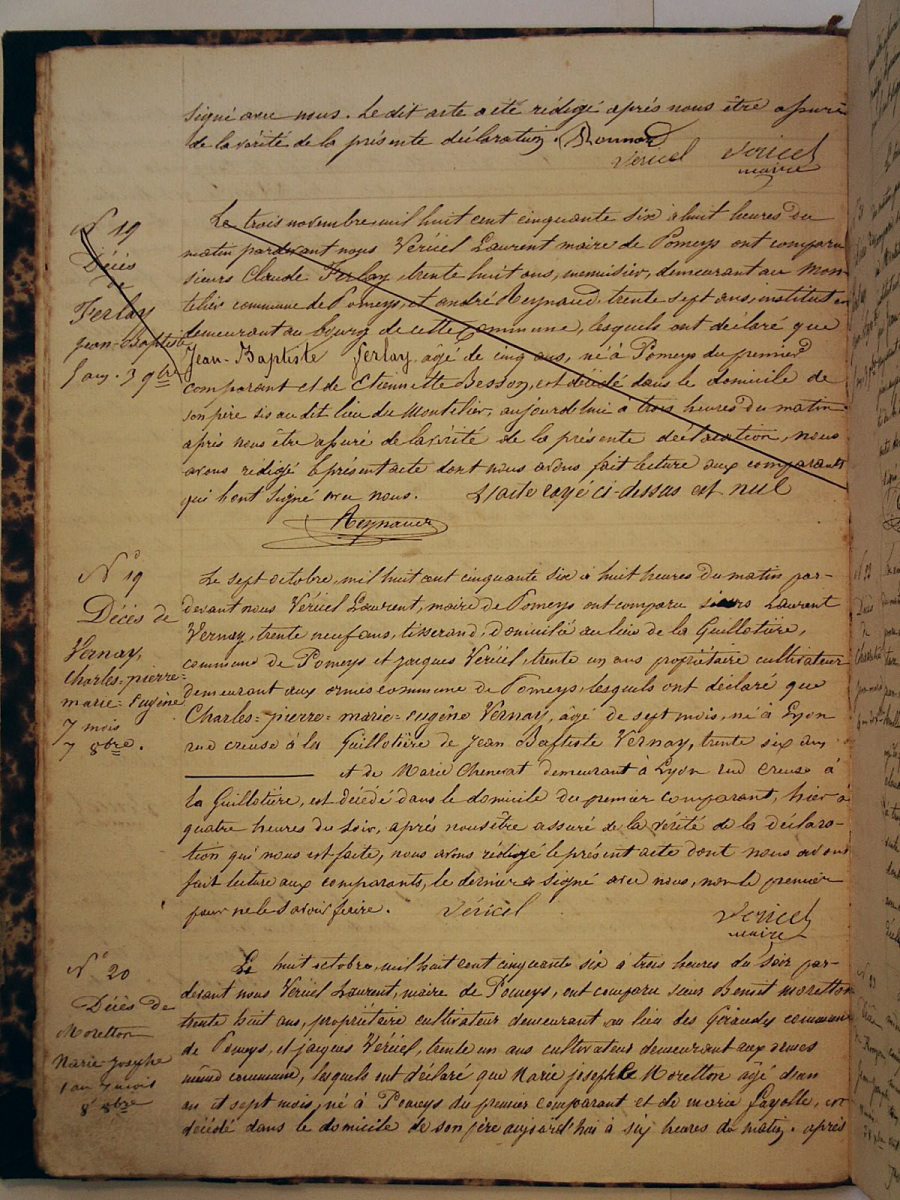 signé avec nous. Le dit acte a été rédigé après nous être assuré
de la vérité de la présente déclaration. Bonnard
Véricel Véricel
maire
N° 19
Décès
de
Ferlay
Jean-Baptiste
5 ans. 3 9bre
Le trois novembre mil huit cent cinquante six à huit heures du
matin pardevant nous Véricel Laurent maire de Pomeys ont comparu
sieurs Claude Ferlay, trente huit ans, menuisier, demeurant au Mon-
telier commune de Pomeys, et andré Reynaud, trente sept ans, instituteur
demeurant au bourg de cette Commune, lesquels ont déclaré que
Jean-Baptiste Ferlay, âgé de cinq ans, né à Pomeys du premier
comparant et de Etiennette Besson, est décédé dans le domicile de
son père sis au dit lieu du Montelier, aujourd'hui a trois heures du matin
après nous être assuré de la vérité de la présente declaration, nous
avons rédigé le présent acte dont nous avons fait lecture aux comparants
qui l'ont signé avec nous. L'acte rayé ci-dessus est nul
Reynaud
N° 19
Décès de
Vernay,
Charles=pierre=
marie=Eugène
7 mois
7 8bre.
Le sept octobre, mil huit cent cinquante six à huit heures du matin par-
devant nous Véricel Laurent, maire de Pomeys ont comparu sieurs Laurent
Vernay, trente neuf ans, tisserand, domicilié au lieu de la Guillotière,
commune de Pomeys et jacques Véricel, trente un ans propriétaire cultivateur
demeurant aux ormes commune de Pomeys, lesquels ont déclaré que
Charles=pierre=marie=eugène Vernay, âgé de sept mois, né à Lyon
rue creuse à la Guillotière de Jean Baptiste Vernay, trente six ans
et de Marie demeurant à Lyon rue creuse à
la Guillotière, est décédé dans le domicile du premier comparant, hier à
quatre heures du soir, après nous être assuré de la vérité de la déclara-
tion qui nous est faite, nous avons rédigé le présent acte dont nous avons
fait lecture aux comparants, le dernier a signé avec nous, non le premier
pour ne le savoir faire. Véricel Véricel
maire
N° 20
Décès de
Moretton
Marie-Josephe
1 an 7 mois
8 8bre
Le huit octobre, mil huit cent cinquante six a trois heures du soir par-
devant nous Véricel Laurent, maire de Pomeys, ont comparu sieurs Benoit Moretton
trente huit ans, propriétaire cultivateur demeurant au lieu des commune
de Pomeys, et jacques Véricel, trente un ans cultivateur demeurant aux ormes
même commune, lesquels ont déclaré que Marie josephe Moretton âgé d'un
an et sept mois, né à Pomeys du premier comparant et de marie fayolle, est
décédé dans le domicile de son père aujourd'hui à six heures du matin. après